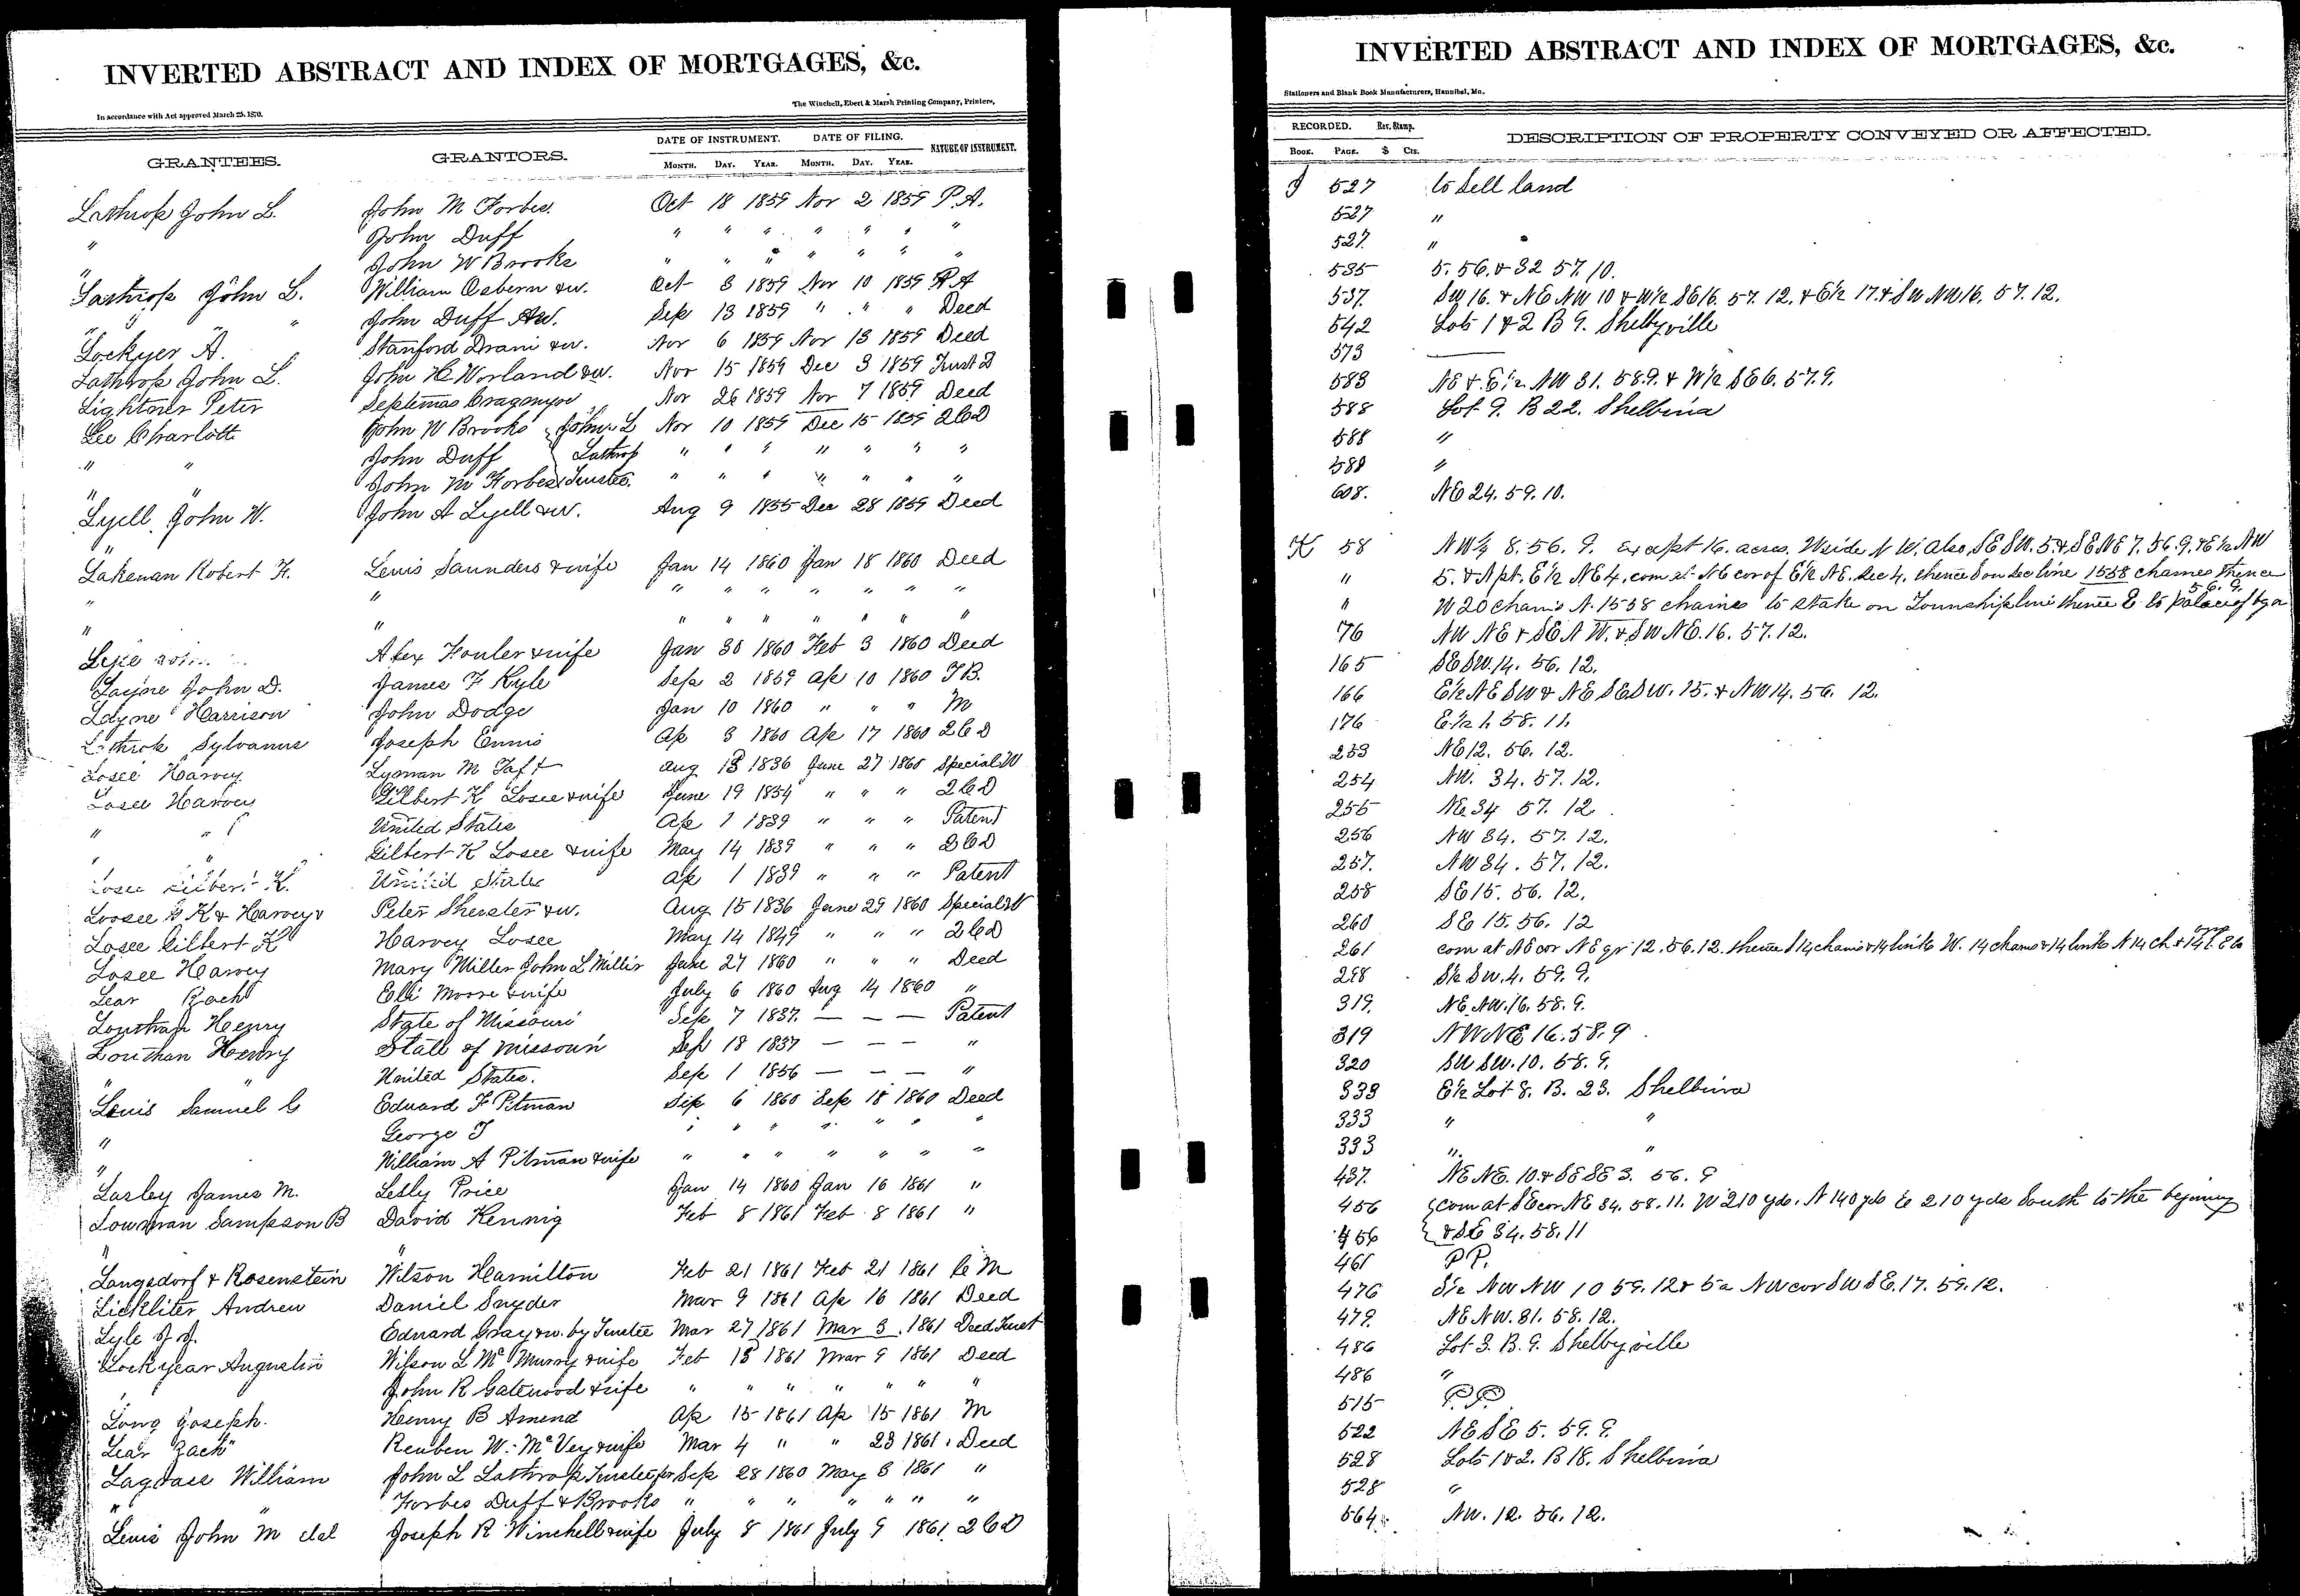 INVERTED ABSTRACT AND INDEX OF MORTGAGES, &c.
In accordance with Act approved March 25, 1870.
The Winchell, Ebert & Marsh Printing Company, Printers,
GRANTEES.
GRANTORS.
DATE OF INSTRUMENT. DATE OF FILING. NATURE OF INSTRUMENT.
MONTH. DAY. YEAR. MONTH. DAY. YEAR.
Lathrop John L. John M Forbes. Oct 18 1859 Nov 2 1859 P.A.
" John Duff " " " " " " "
" John W Brooks " " " " " " "
Lathrop John L. William Osborn &w. Oct 8 1859 Nov 10 1859 P A
" " John Duff &w. Sep 13 1859 " " " Deed
Lockyer A. Stanford Drain &w. Nov 6 1859 Nov 13 1859 Deed
Lathrop John L. John H Worland &w. Nov 15 1859 Dec 3 1859 Trust D
Lightner Peter Septimas Nov 26 1859 Nov 7 1859 Deed
Lee Charlott John W Brooks John L Nov 10 1859 Dec 15 1859 2CD
" " John Duff Lathrop " " " " " " "
" " John M Forbes Trustee. " " " " " " "
Lyell John W. John A Lyell &w. Aug 9 1855 Dec 28 1859 Deed
Lakenan Robert F. Lewis Saunders & wife Jan 14 1860 Jan 18 1860 Deed
" " " " " " " " "
" " " " " " " " "
Alex Fowler & wife Jan 30 1860 Feb 3 1860 Deed
Layne John D. James F Kyle Sep 2 1859 Ap 10 1860 T B.
Layne Harrison John Dodge Jan 10 1860 " " " M
Lathrop Sylvanus Joseph Ennis Ap 3 1860 Ap 17 1860 2CD
Losee Harvey Lyman M Taft Aug 13 1836 June 27 1860 Special W
Losee Harvey Gilbert K Losee & wife June 19 1854 " " " 2CD
" " United States Ap 1 1839 " " " Patent
" " Gilbert K Losee & wife May 14 1839 " " " 2CD
Losee Gilbert K. United States Ap 1 1839 " " " Patent
Loosee G K & Harvey Peter &w. Aug 15 1836 June 29 1860 Special W
Losee Gilbert K Harvey Losee May 14 1849 " " " 2CD
Losee Harvey Mary Miller John L Miller June 27 1860 " " " Deed
Lear Zach Eli Moore & wife July 6 1860 Aug 14 1860 "
Louthan Henry State of Missouri Sep 7 1837. — — — Patent
Louthan Henry State of Missouri Sep 18 1837 — — — "
" " United States. Sep 1 1856 — — — "
Lewis Samuel C Edward F Pitman Sep 6 1860 Sep 18 1860 Deed
" George T " " " " " " "
" William A Pitman & wife " " " " " " "
Lasley James M. Lesly Price Jan 14 1860 Jan 16 1861 "
Lowman Sampson B David Hennig Feb 8 1861 Feb 8 1861 "
" "
Langsdorf & Rosenstein Wilson Hamilton Feb 21 1861 Feb 21 1861 C M
Lickliter Andrew Daniel Snyder Mar 9 1861 Ap 16 1861 Deed
Lyle J J. Edward Gray &w. by Trustee Mar 27 1861 Mar 3 1861 Deed Trust
Lockyear Augustin Wilson L McMurry & wife Feb 13 1861 Mar 9 1861 Deed
John R Gatewood & wife " " " " " " "
Long Joseph. Henry B Amend Ap 15 1861 Ap 15 1861 M
Lear Zach Reuben W. McVey & wife Mar 4 " " 23 1861 Deed
William John L Lathrop Trustee for Sep 28 1860 May 3 1861 "
" " Forbes Duff & Brooks " " " " " " "
Lewis John M Joseph R Winchell & wife July 8 1861 July 9 1861 2CD
INVERTED ABSTRACT AND INDEX OF MORTGAGES, &c.
Stationers and Blank Book Manufacturers, Hannibal, Mo.
RECORDED. Rev. Stamp.
DESCRIPTION OF PROPERTY CONVEYED OR AFFECTED.
BOOK. PAGE. $ Cts.
J 527 to sell land
527 "
527. "
535 5. 56. & 32 57. 10.
537. SW 16. & NE NW 10 & W½ SE 16. 57. 12. & E½ 17. & SW NW 16. 57. 12.
542 Lots 1 & 2 B 9. Shelbyville
573 ——
583 NE & E½ NW 31. 58. 9. & W½ SE 6. 57. 9.
588 Lot 9. B 22. Shelbina
588 "
588 "
608. NE 24. 59. 10.
K 58 NW¼ 8. 56. 9. Except 16. acres. W side N W. also SE SW. 5. & SE NE 7. 56. 9. & E½ NW
" 5. & A pt. E½ NE 4, com at NE cor of E½ NE. Sec 4, thence S on Sec line 1558 chains thence
" W 20 chains N. 1558 chains to stake on Township line thence E to place of bg 56. 9.
76 NW NE & SE N W. & SW NE. 16. 57. 12.
165 SE SW. 14. 56. 12.
166 E½ NE SW & NE SE SW. 15. & NW 14. 56. 12.
176 E½ 1. 58. 11.
253 NE 12. 56. 12.
254 NW. 34. 57. 12.
255 NE 34 57. 12.
256 NW 34. 57. 12.
257. NW 34. 57. 12.
258 SE 15. 56. 12.
260 SE 15. 56. 12
261 com at NE cor NE qr 12. 56. 12. thence S 14 chains & 14 links W. 14 chains & 14 links N 14 ch & 14 l. E to
298 S½ SW. 4. 59. 9.
319. NE NW. 16. 58. 9.
319 NW NE 16. 58. 9
320 SW SW. 10. 58. 9.
333 E½ Lot 8. B. 23. Shelbina
333 " "
333 " "
437. NE NE. 10. & SE SE 3. 56. 9
456 com at SE cor NE 34. 58. 11. W 210 yds. N 140 yds E 210 yds South to the beginning
456 & SE 34. 58. 11
461 P P.
476 S½ NW NW 10 59. 12 & 5a NW cor SW SE. 17. 59. 12.
479. NE NW. 31. 58. 12.
486 Lot 3. B. 9. Shelbyville
486 "
515 P. P.
522 NE SE 5. 59. 9.
528 Lots 1 & 2. B 18. Shelbina
528 "
564 NW. 12. 56. 12.